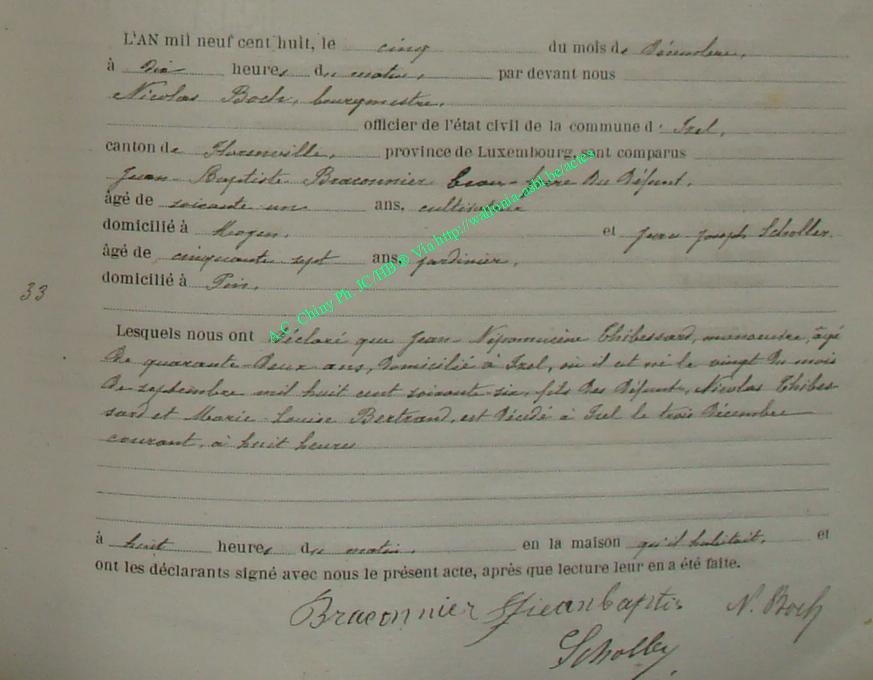 L'AN mil neuf cent huit, le cinq du mois de Décembre,
à Dix heures du matin, par devant nous
Nicolas Boch, bourgmestre,
officier de l'état civil de la commune d'Izel,
canton de Florenville, province de Luxembourg, sont comparus
Jean-Baptiste Braconnier beau-frère du Défunt,
âgé de soixante un ans, cultivateur
domicilié à Moyen, et Jean-Joseph Scholler
âgé de cinquante sept ans, jardinier,
domicilié à Pin,
33
Lesquels nous ont Déclaré que Jean-Népomucène Thibessard, manoeuvre, âgé
De quarante-Deux ans, Domicilié à Izel, où il est né le vingt Du mois
De septembre mil huit cent soixante-six, fils Des Défunt, Nicolas Thibes-
sard et Marie-Louise Bertrand, est Décédé à Izel le trois Décembre
courant, à huit heures
à huit heures du matin, en la maison qu'il habitait, et
ont les déclarants signé avec nous le présent acte, après que lecture leur en a été faite.
Braconnier Jean baptis N. Boch
A.C. Chiny Ph. JC/HB © Via http://wallonia-asbl.be/actes